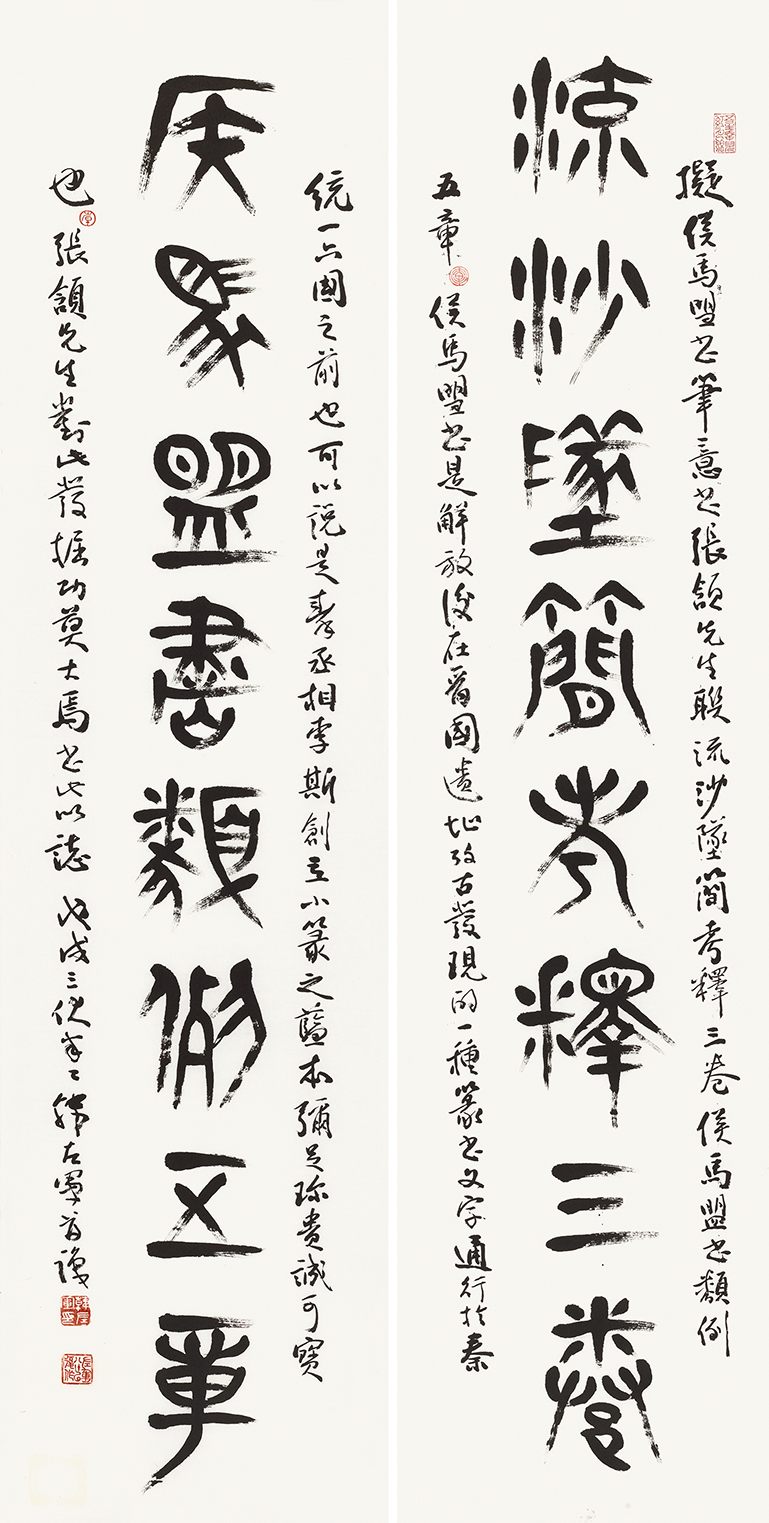 流沙墜簡考釋三卷
侯馬盟書類例五章
擬侯馬盟書筆意書張頷先生聯流沙墜簡考釋三卷侯馬盟書類例
五章侯馬盟書是解放後在晉國遺址考古發現的一種篆書文字通行於秦
統一六國之前也可以說是秦丞相李斯創立小篆之藍本彌足珍貴誠可寶
也張頷先生對此發掘功莫大焉書此以誌戊戌三伏韓左軍